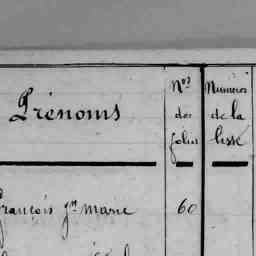 Prénoms
Nos des folios
Numéros de la liste
François Jn marie 60